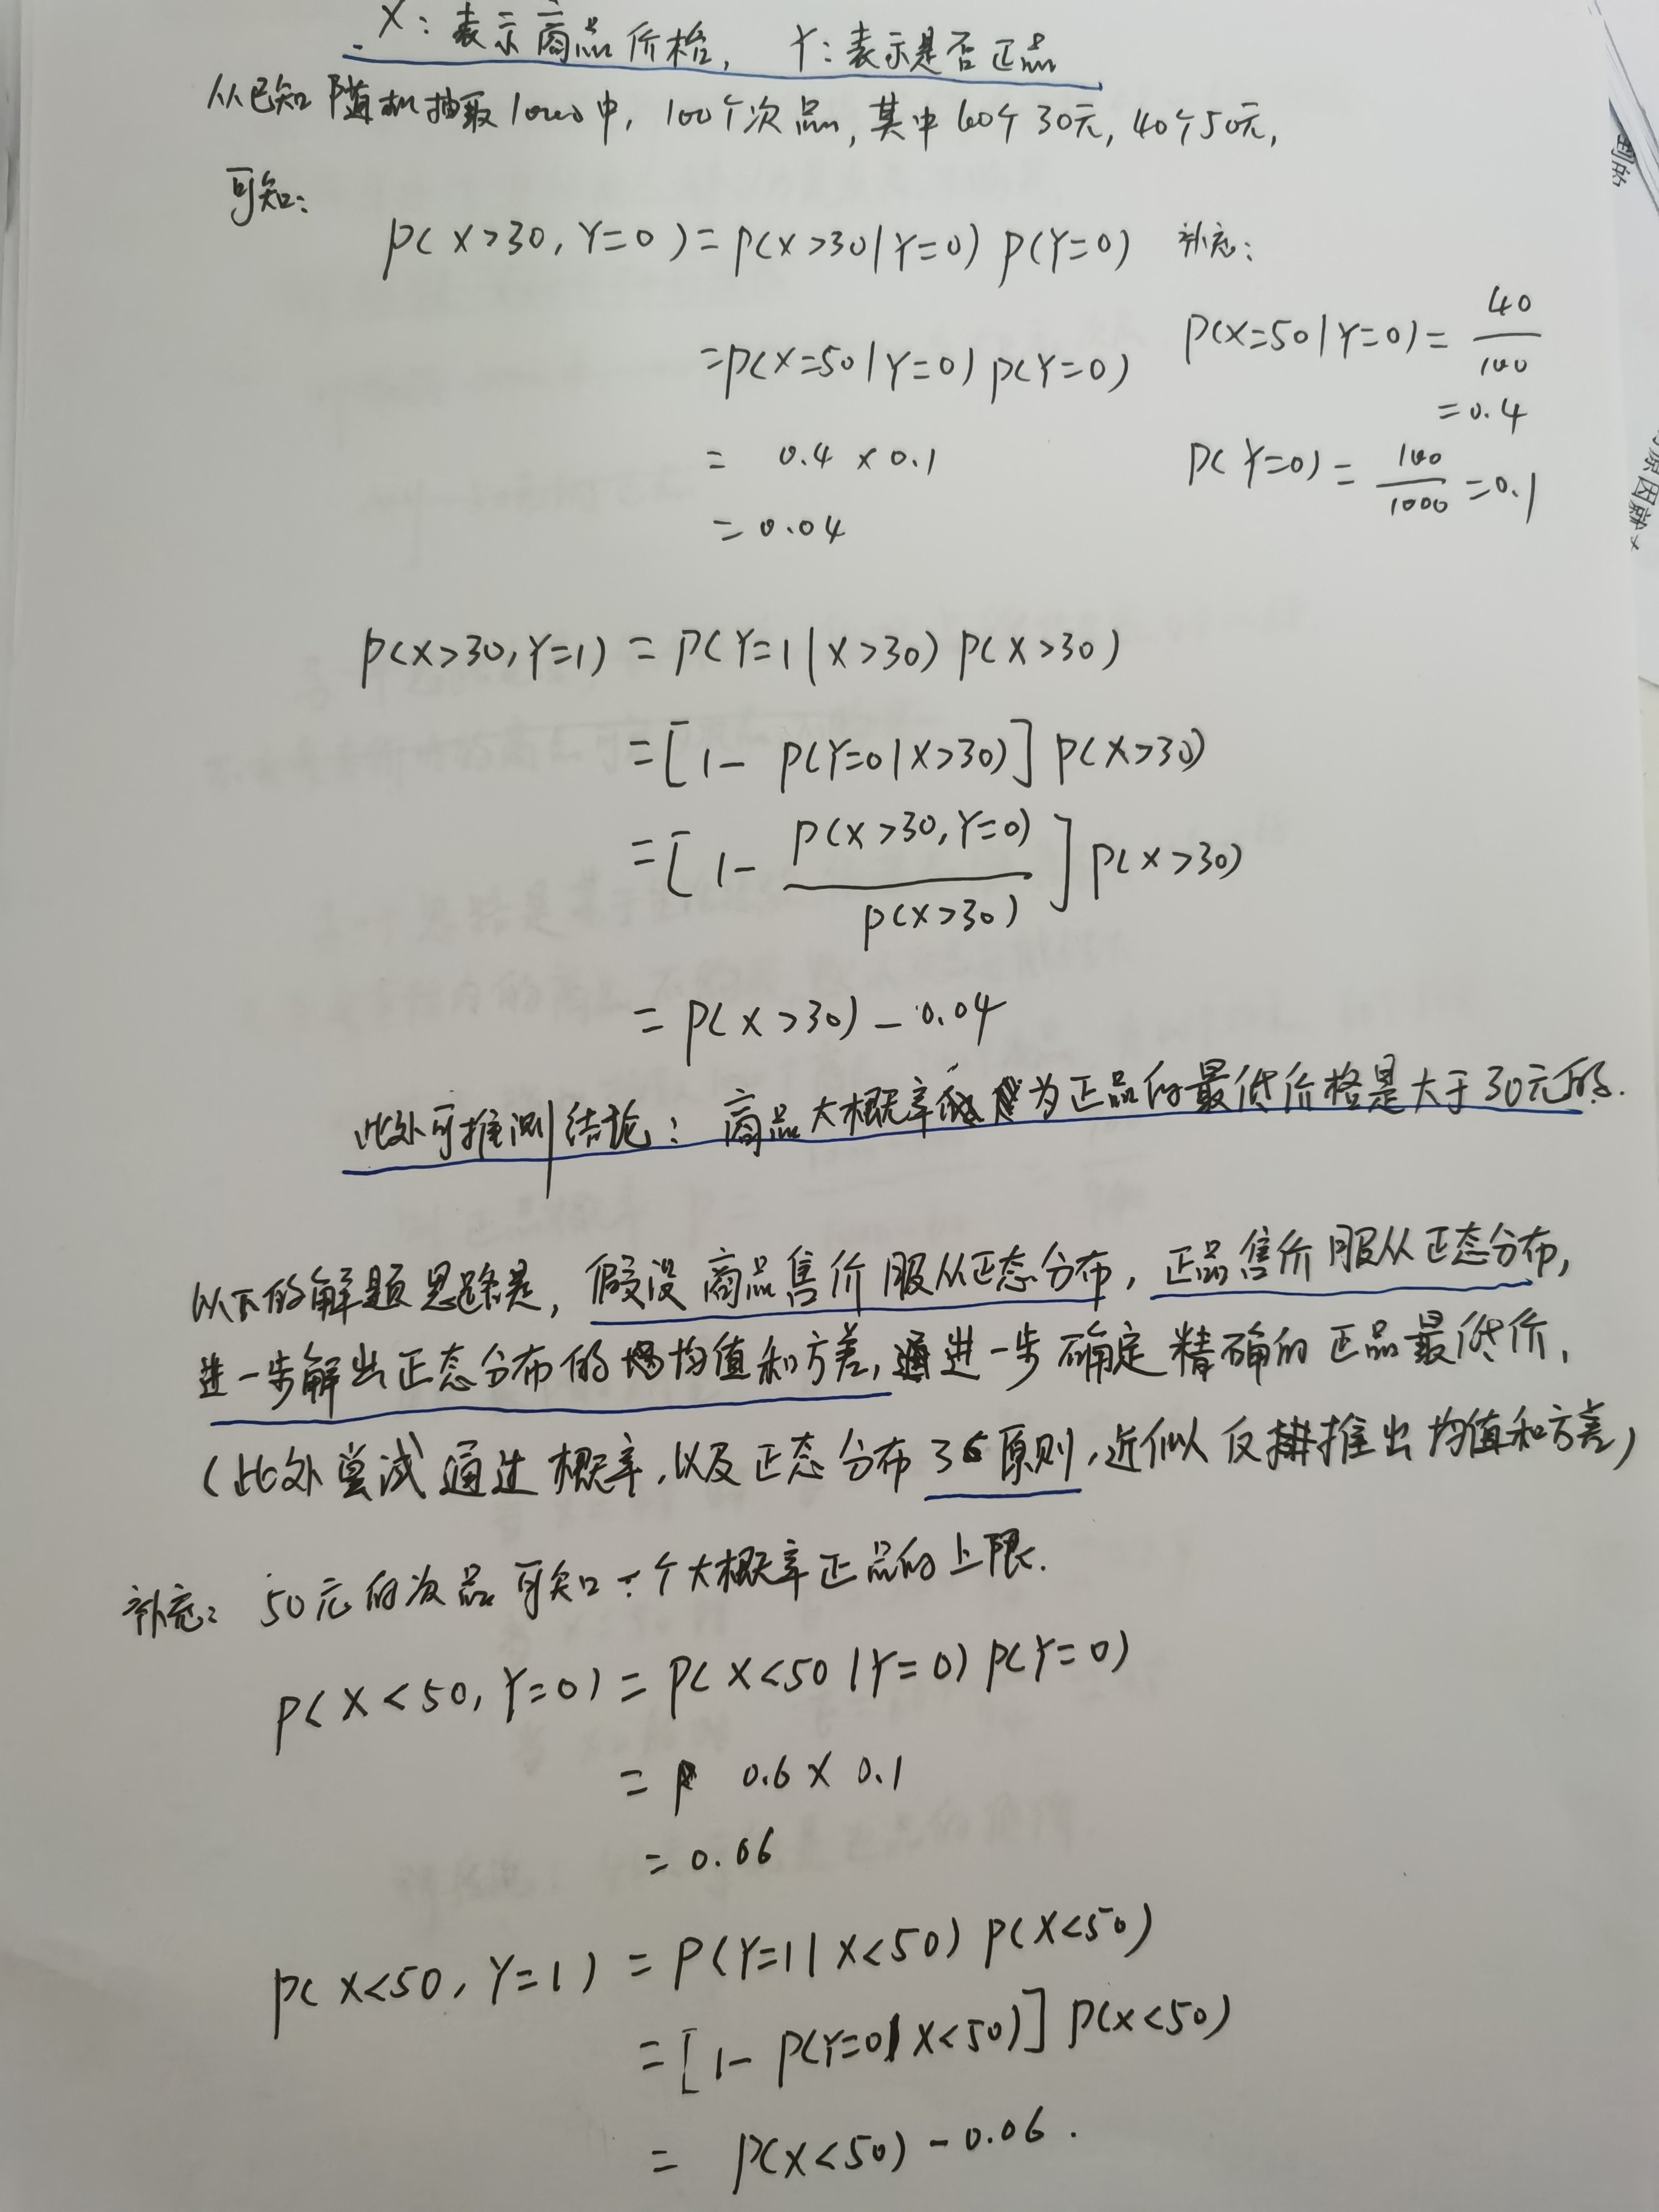 X：表示商品价格，  Y：表示是否正品
从已知随机抽取1000中，100个次品，其中60个30元，40个50元，
可知：
P(X>30, Y=0) = P(X>30|Y=0) P(Y=0)  补充：
= P(X=50|Y=0) P(Y=0)  P(X=50|Y=0) = 40/100
= 0.4
= 0.4 × 0.1  P(Y=0) = 100/1000 = 0.1
= 0.04
P(X>30, Y=1) = P(Y=1|X>30) P(X>30)
= [1 - P(Y=0|X>30)] P(X>30)
= [1 - P(X>30, Y=0)/P(X>30)] P(X>30)
= P(X>30) - 0.04
此处可推测结论：商品大概率为正品的最低价格是大于30元的.
以下的解题思路是，假设商品售价服从正态分布，正品售价服从正态分布，
进一步解出正态分布的均值和方差，进一步确定精确的正品最低价，
（此处尝试通过概率，以及正态分布3σ原则，近似反推出均值和方差）
补充：50元的次品可知一个大概率正品的上限.
P(X<50, Y=0) = P(X<50|Y=0) P(Y=0)
= 0.6 × 0.1
= 0.06
P(X<50, Y=1) = P(Y=1|X<50) P(X<50)
= [1 - P(Y=0|X<50)] P(X<50)
= P(X<50) - 0.06.